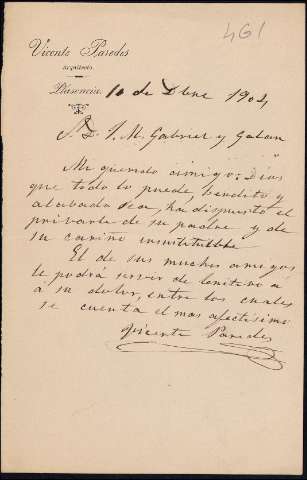 461
Vicente Paredes
Arquitecto
Plasencia 10 de Dbre 1904
Sr. D. J. M. Gabriel y Galan
Mi querido amigo: Dios
que todo lo puede, bendito y
alabado sea, ha dispuesto el
privarle de su padre y de
su cariño insustituible
El de sus muchos amigos
le podrá servir de lenitivo á
á su dolor, entre los cuales
se cuenta el mas afectisimo
Vicente Paredes